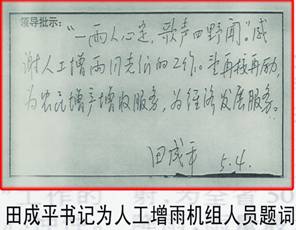 领导批示:
"一雨人心定,歌声四野闻"。感
谢人工增雨同志们的工作。望再接再励,
为农民增产增收服务,为经济发展服务。
田成平 5.4.
田成平书记为人工增雨机组人员题词